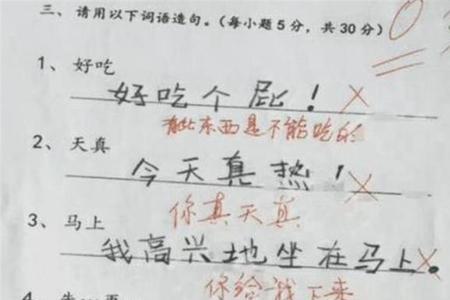 三、请用以下词语造句。(每小题5分，共30分)
0
1、好吃
好吃个屁！
有些东西是不能吃的
2、天真
今天真热！
你真天真
3、马上
我高兴地坐在马上。
你给我下来
4